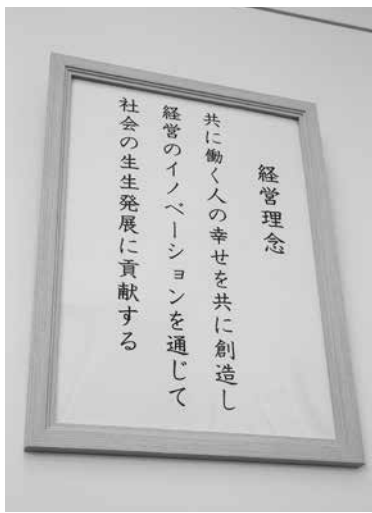 経営理念
共に働く人の幸せを共に創造し
経営のイノベーションを通じて
社会の生生発展に貢献する